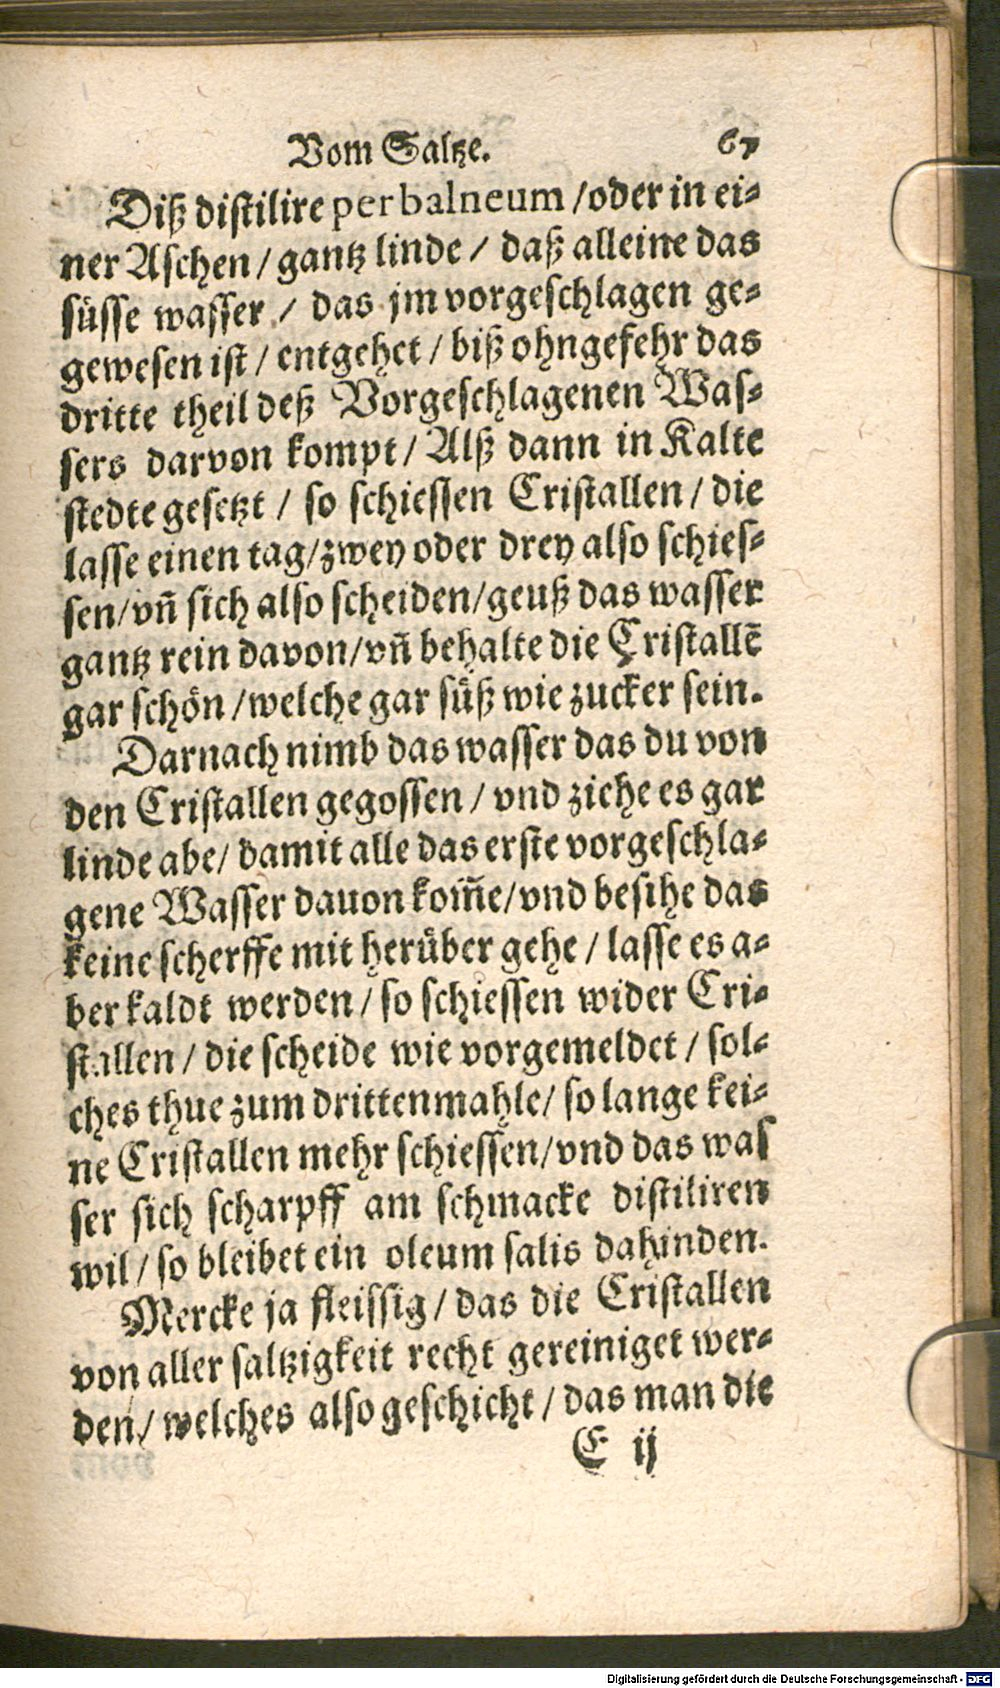 Vom Saltze. 67
Diß distilire per balneum / oder in ei-
ner Aschen / gantz linde / daß alleine das
süsse wasser / das jm vorgeschlagen ge-
gewesen ist / entgehet / biß ohngefehr das
dritte theil deß Vorgeschlagenen Was-
sers darvon kompt / Alß dann in Kalte
stedte gesetzt / so schiessen Cristallen / die
lasse einen tag / zwey oder drey also schies-
sen / vñ sich also scheiden / geuß das wasser
gantz rein davon / vñ behalte die Cristallē
gar schön / welche gar süß wie zucker sein.
Darnach nimb das wasser das du von
den Cristallen gegossen / vnd ziehe es gar
linde abe / damit alle das erste vorgeschla-
gene Wasser dauon kom̃e / vnd besihe das
keine scherffe mit herüber gehe / lasse es a-
ber kaldt werden / so schiessen wider Cri-
stallen / die scheide wie vorgemeldet / sol-
ches thue zum drittenmahle / so lange kei-
ne Cristallen mehr schiessen / vnd das was
ser sich scharpff am schmacke distiliren
wil / so bleibet ein oleum salis dahinden.
Mercke ja fleissig / das die Cristallen
von aller saltzigkeit recht gereiniget wer-
den / welches also geschicht / das man die
E ij
Digitalisierung gefördert durch die Deutsche Forschungsgemeinschaft - DFG